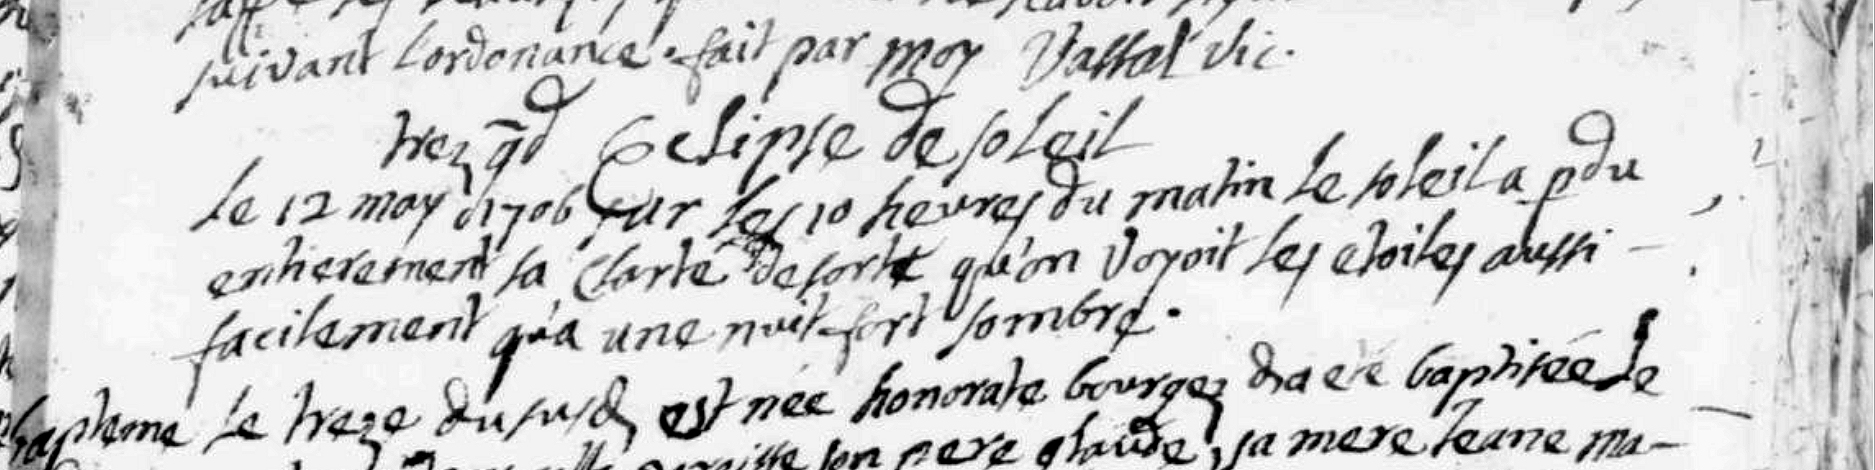 suivant l'ordonance. fait par moy Vassal vic.
trez gd Eclipse de soleil
Le 12 may 1706 sur les 10 heures du matin le soleil a pdu
entierement sa clarte de sorte qu'on voyoit les etoiles aussi -
facilement qu'a une nuit fort sombre.
bapteme le treze du susd est née honorate bourgez & a eté baptisée le
son pere glaude, sa mere Jeane ma-